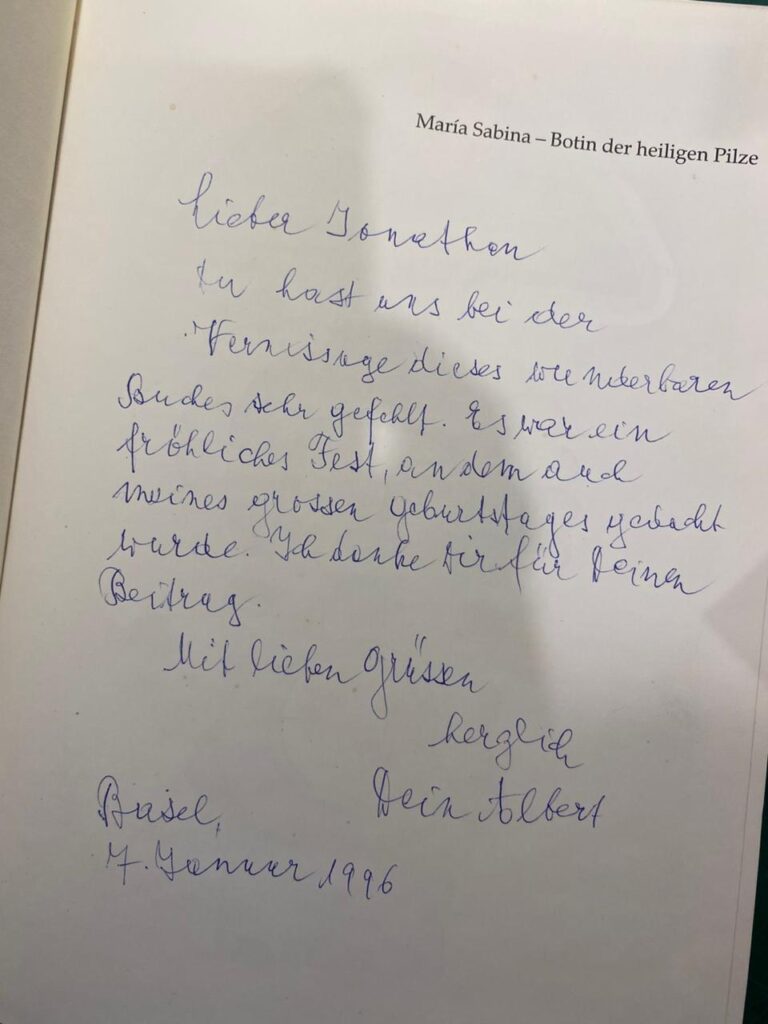 María Sabina – Botin der heiligen Pilze
Lieber Jonathon
Du hast uns bei der
Vernissage dieses wunderbaren
Buches sehr gefehlt. Es war ein
fröhliches Fest, an dem auch
meines grossen Geburtstages gedacht
wurde. Ich danke Dir für Deinen
Beitrag.
Mit lieben Grüssen
herzlich
Dein Albert
Basel,
7. Januar 1996